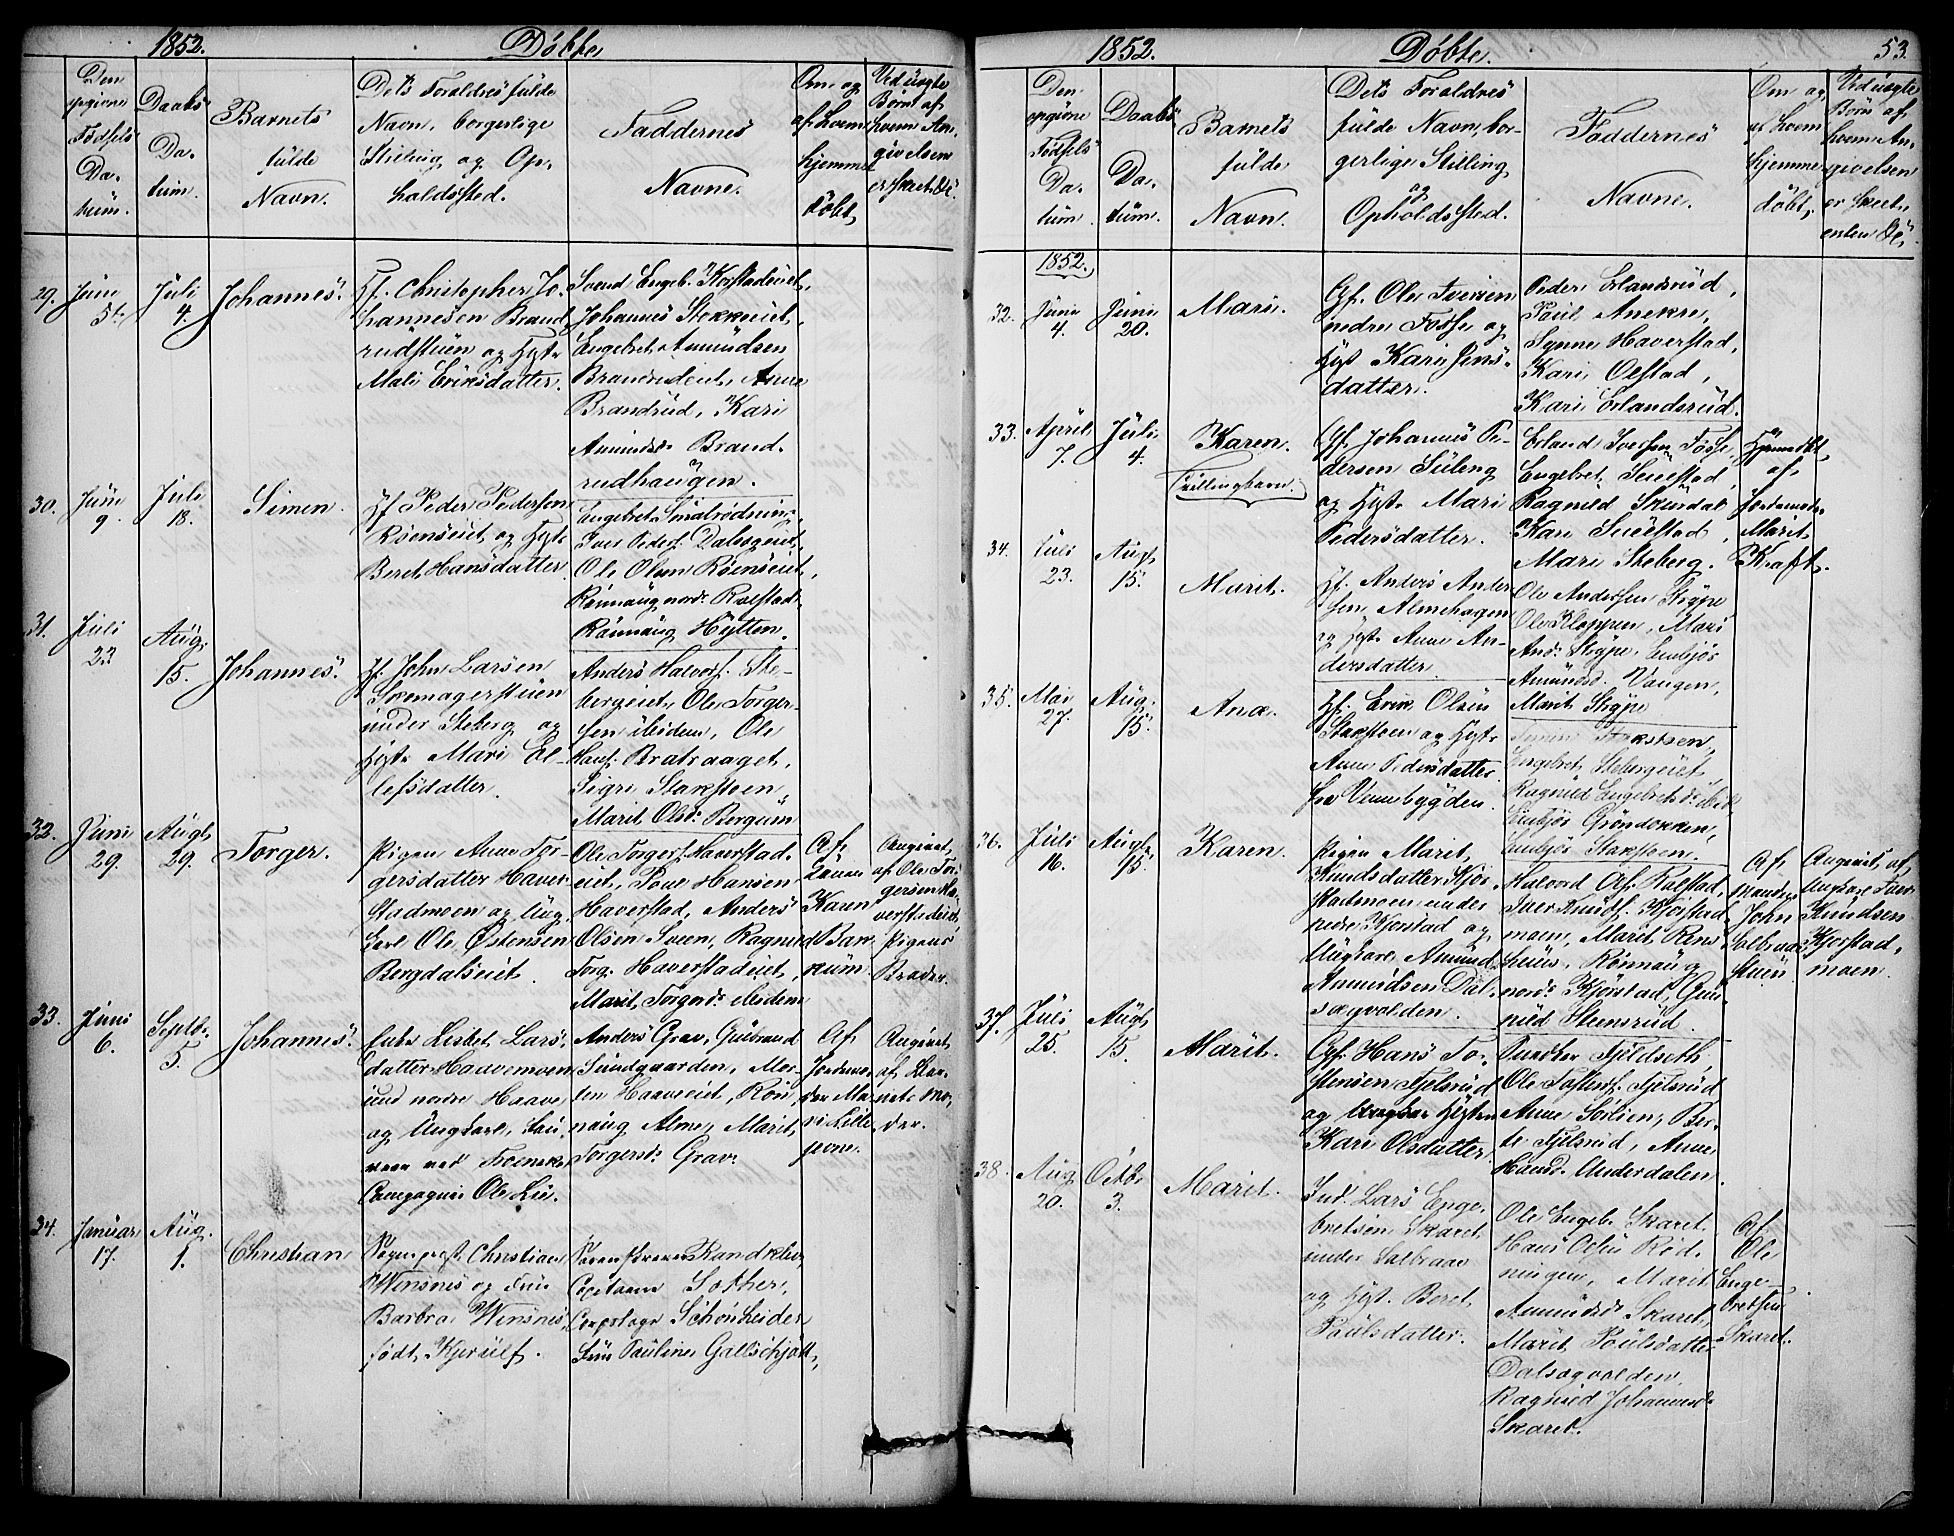 1852.
Döbte
Den opgivne Födsels Datum.
Daabs Datum.
Barnets fulde Navn.
Dets Foraldres fulde
Navn, borgerlige
Stilling og Op-
holdssted.
Faddernes
Navne.
Om og af hvem hjemme döbt,
Ved uægte Börn af hvem Angivelsen er skeet &c
29. Juni 5te Juli 4. Johannes.
Gf. Christopher Jo-
hannesen Brand-
rudstuen og Hust.
Mali Eriksdatter.
Svend Engeb.
Johannes
Engebret Amundsen
Anne
Brandrud, Kari
Amundsd. Brand-
rudhaugen.
30. Juni 9. Juli 18. Simen.
Hf. Peder Pedersen
og Hust.
Beret Hansdatter.
Engebret
Iver Peders.
Ole Olsen
Rönnaug nord. Rolstad
Rönnaug Hytten.
31. Juli 23 Aug. 15. Johannes.
Hf. John Larsen
Skomagerstuen
under Steberg og
Hust. Mari Ol-
lefsdatter.
Anders Halvors. Ste-
bergeiet, Ole Torger-
sen ibidem, Ole
Hans. Bratraaget,
Sigri Stakstoen,
Marit Olsd. Bergum
32. Juni 29. Augt. 29. Torger.
Pigen Anne Tor-
gersdatter Haver-
stadmoen og Ung-
karl Ole Östensen
Bergdalseiet.
Ole Torgers. Haverstad-
eiet, Poul Hansen
Haverstad, Anders
Olsen Sveen, Ragnild
Torg. Haverstadeiet,
Marit Torgersd. ibidem
Af
Karen
Bak-
kum.
Angivet
af Ole Tor-
gersen Ha-
verstadeiet,
Pigens
Broder.
33. Juni 6. Septb. 5. Johannes.
Enke Lisbet Lars-
datter Haavemoen
und nordre Haave
og Ungkarl,
ved
Compagnie Ole Lie.
Anders Grav, Gulbrand
Sundgaarden, Mor-
ten Haaveeiet, Rön-
naug Alme, Marit
Torgersd. Grav.
Af
Jordemo-
der Ma-
ri Lille-
Angivet
af Bar-
nets Mo-
der.
34. Januar 17. Aug. 1. Christian
Sognepræst Christian
Winsnes og Frue
Barbra Winsnes,
födt Kjerulf.
Sorenskriver Randklev,
Capitain
Corpslæge Schönheider
Frue Pauline Gallschjött,
1852.
Döbte.
53.
Den opgivne Födsels Datum.
Daabs Datum.
Barnets fulde Navn.
Dets Foraldres
fulde Navn, bor-
gerlige Stilling
og
Opholdssted.
Faddernes
Navne.
Om og af hvem hjemme döbt,
Ved uægte Börn af hvem Angivelsen er skeet, enten &c
1852.
32. Juni 4. Juni 20. Mari.
Gf. Ole Iversen
nedre Fosse og
Hust Kari Jens-
datter.
Peder Erlandsrud,
Poul Anekre,
Synne Haverstad,
Kari Olstad,
Kari Erlandsrud.
33. April 7. Juli 4. Karen.
Tvillingbarn.
Gf. Johannes Pe-
dersen Suleng
og Hust. Mari
Pedersdatter.
Erland Iversen Fosse,
Engebret Seielstad,
Ragnild Skurdal
Kari Seielstad,
Mari Steberg.
Hjemdöbt
af
Jordemoder
Marit
Kraft.
34. Juli 23. Augt. 15. Marit.
Hf. Anders Ander-
sen Almehagen
og Hust. Anne An-
dersdatter.
Ole Andersen Stygje
Ole Kloppen, Mari
And. Stygje, Embjör
Amundsd. Vangen,
Marit Stygje
35. Mai 27. Aug. 15. Ane.
Hf. Erik Olsen
Stakstoen og Hust
Anne Pedersdatter
fra Vennebygden.
Engebret Stebergeiet,
Ragnild Engebretsd. ibid,
Embjör Gröndokken,
Embjör Stakstoen.
36. Juli 16. Augt. 15. Karen.
Pigen Marit
Knudsdatter Kjör-
stadmoen under
nedre Kjorstad og
Ungkarl Amund
Amundsen Dal-
sægvolden.
Halvord Ols. Rolstad,
Iver Knuds. Kjörstad-
moen, Marit
Rönnaug
nord. Kjörstad, Gun-
nild Steensrud.
Af
John
Solbraa-
stuen
Angivet af
Ungkarl Iver
Knudsen
Kjorstad-
moen.
37. Juli 25. Augt. 15. Marit.
Gf. Hans To-
stensen Fjelsrud
og Hustru
Kari Olsdatter,
Fjeldseth,
Ole Tostens. Fjelsrud
Anne Sörlien, Ber-
te Fjelsrud, Anne
Hansd. Underdalen.
38. Aug. 20. Octbr. 3. Marit.
Ind. Lars Enge-
bretsen Skaret
under Solbraae
og Hust. Beret
Poulsdatter.
Ole Engeb. Skaret,
Hans Olsen Röd-
ningen, Marit
Amundsd. Skaret,
Marit Poulsdatter
Dalsægvolden,
Ragnild Johannesd.
Skaret.
Af
Ole
Enge-
bretsen
Skaret.